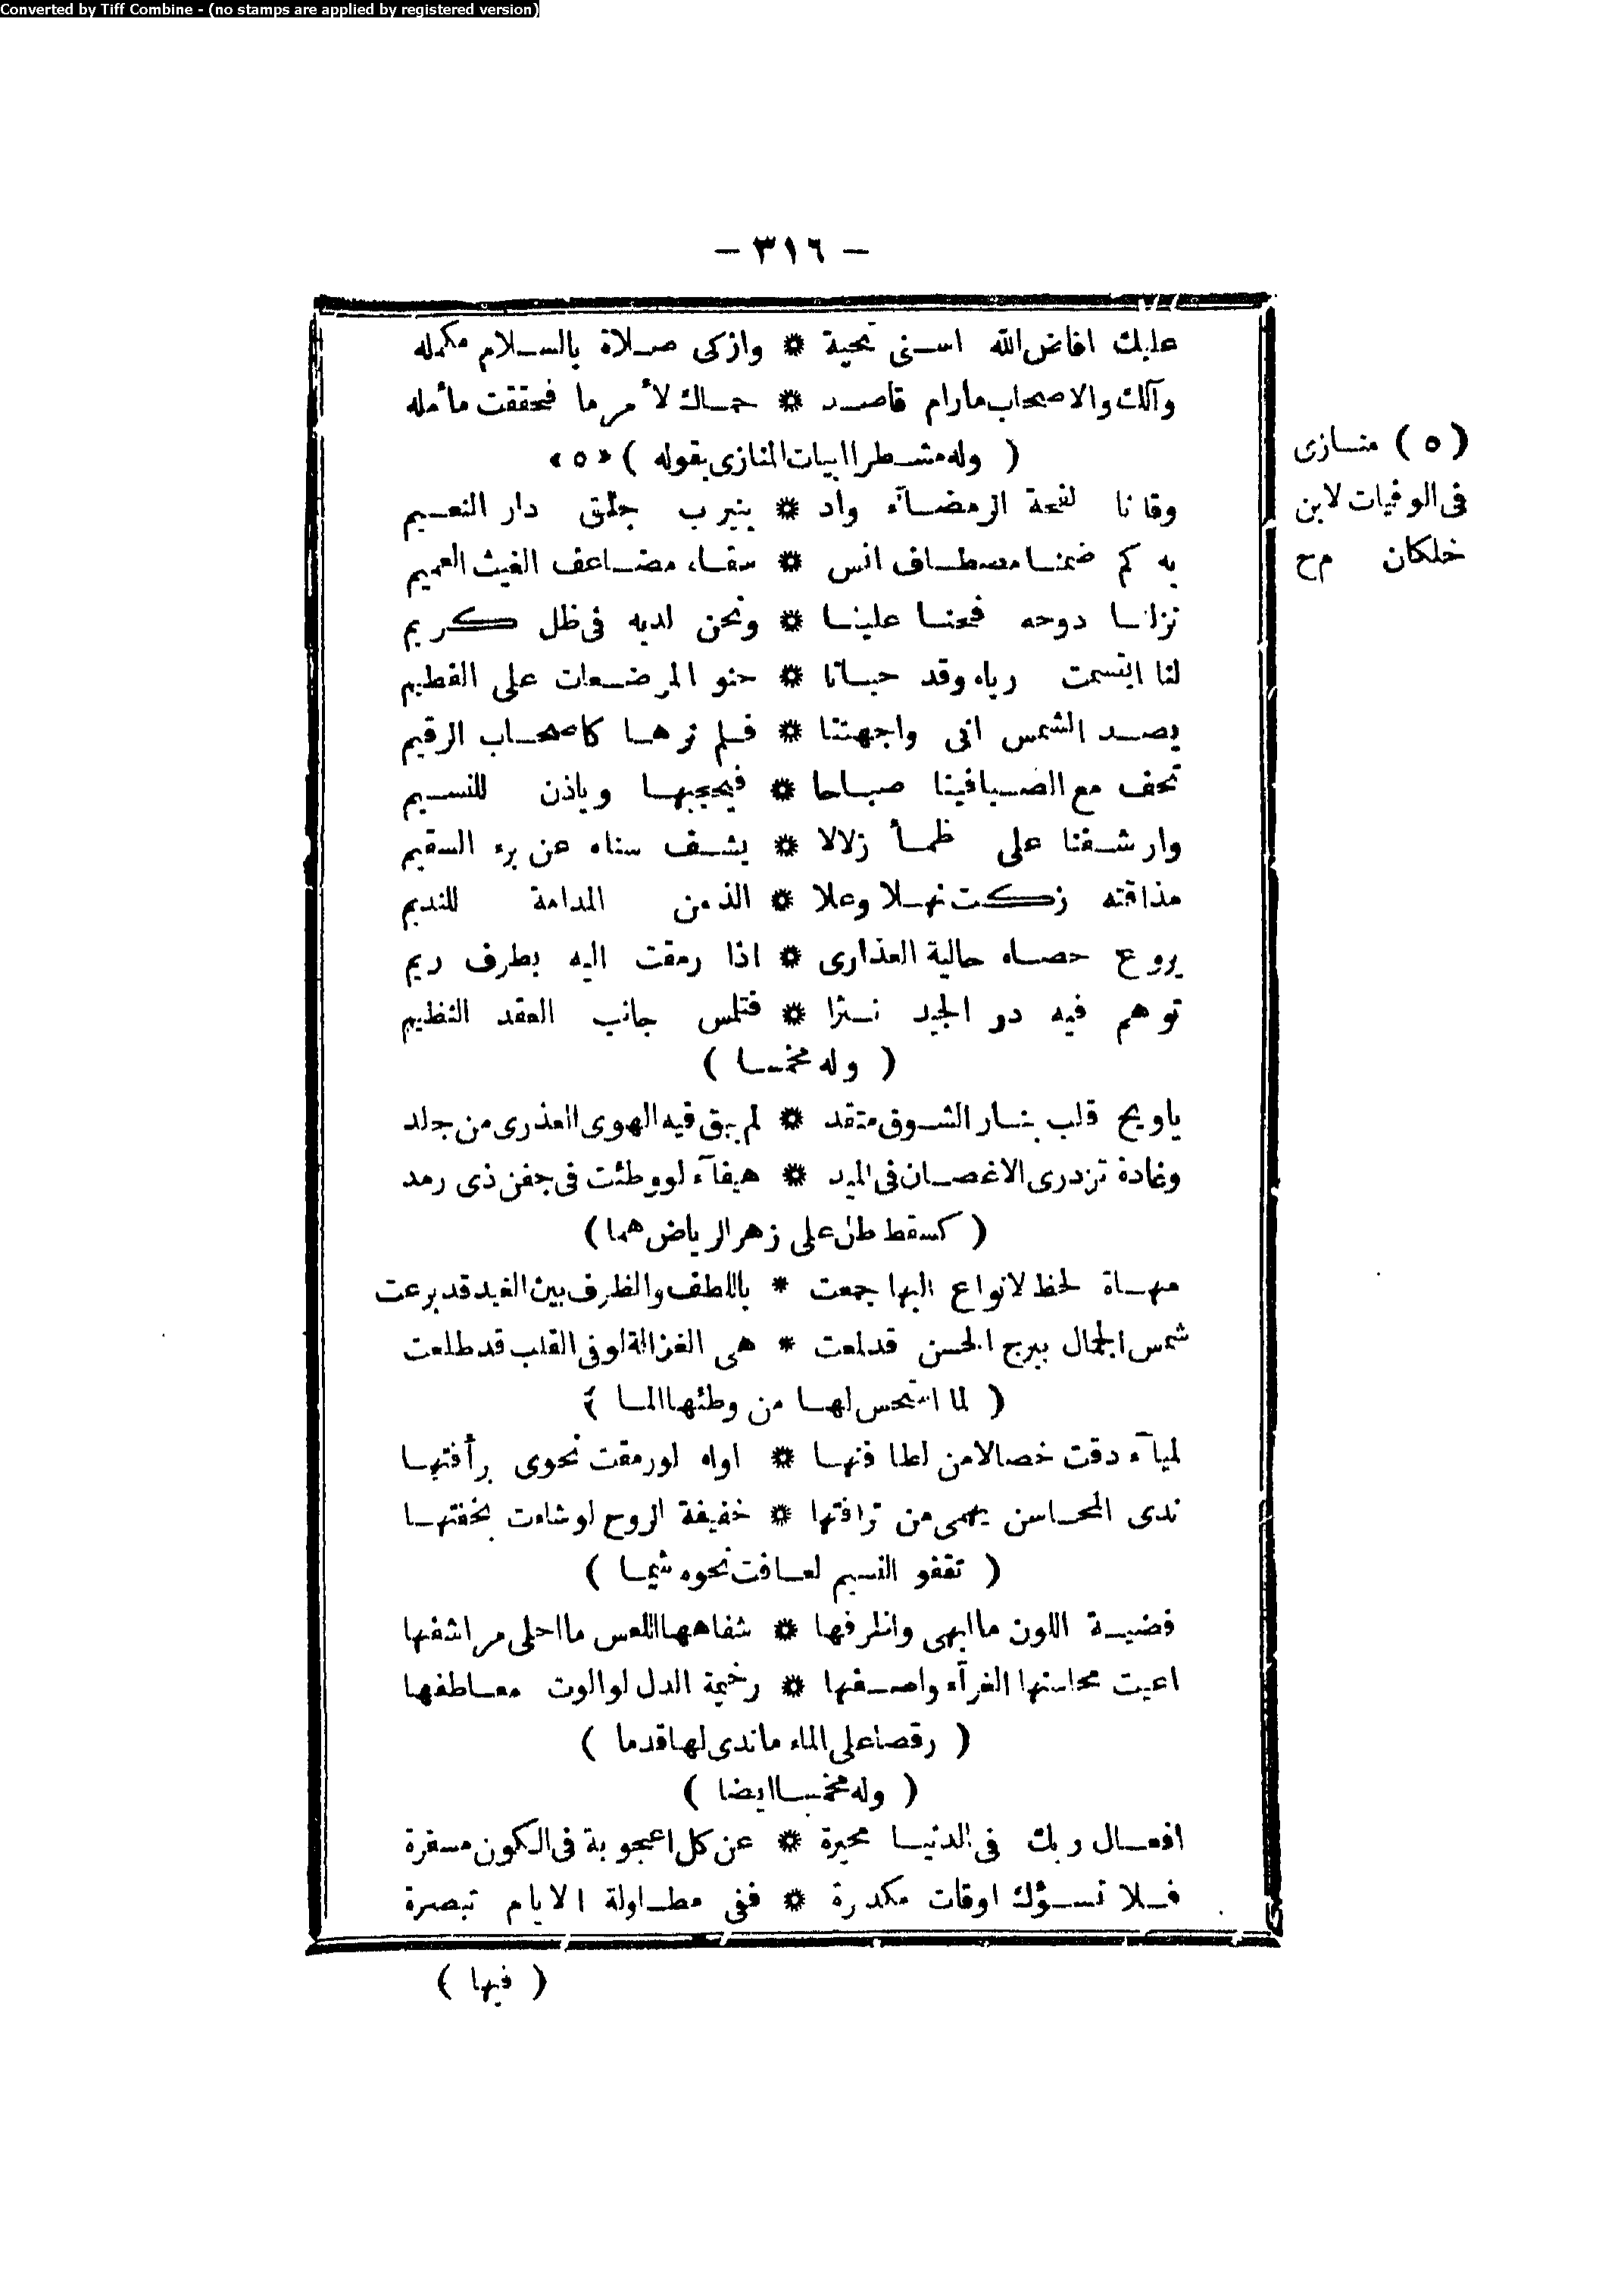 Converted by Tiff Combine - (no stamps are applied by registered version)
— ٣١٦ —
عليك افاض الله اسنى تحية * وازكى صلاة بالسلام مكمله
وآلك والاصحاب مارام قاصد * حماك لأمر ما فحققت مأمله
( وله مشطرا ابيات المنازى بقوله ) «٥»
وقانا لفحة الرمضآء واد * بنيرب جلق دار النعيم
به كم ضمنا مصطاف انس * سقاه مضاعف الغيث العميم
نزلنا دوحه فحنا علينا * ونحن لديه فى ظل كريم
لنا ابتسمت رباه وقد حبانا * حنو المرضعات على الفطيم
يصد الشمس انى واجهتنا * فلم نرها كاصحاب الرقيم
تحف مع الصبا فينا صباحا * فيحجبها وياذن للنسيم
وارشفنا على ظمأ زلالا * يشف سناه عن برء السقيم
مذاقته زكت نهلا وعلا * الذ من المدامة للنديم
يروع حصاه حالية العذارى * اذا رمقت اليه بطرف ريم
توهم فيه در الجيد نثرا * فتلمس جانب العقد النظيم
( وله مخمسا )
ياويح قلب بنار الشوق متقد * لم يبق فيه الهوى العذرى من جلد
وغادة تزدرى الاغصان فى الميد * هيفآء لو وطئت فى جفن ذى رمد
( كسقط طل على زهر الرياض هما )
مهاة لحظ لانواع البها جمعت * باللطف والظرف بين الغيد قد برعت
شمس الجمال ببرج الحسن قد لمعت * هى الغزالة لو فى القلب قد طلعت
( لما استحس لها من وطئها الما )
لميآء دقت خصالا من لطافتها * اواه لو رمقت نحوى برأفتها
ندى المحاسن يهمى من ترافتها * خفيفة الروح لو شاءت بخفتها
( تقفو النسيم لعافت نحوه شيما )
فضية اللون ما ابهى واظرفها * شفاهها اللعس ما احلى مراشفها
اعيت محاسنها الغرآء واصفها * رخيمة الدل لو الوت معاطفها
( رقصا على الماء ما ندى لها قدما )
( وله مخمسا ايضا )
افعال ربك فى الدنيا محيرة * عن كل اعجوبة فى الكون مسفرة
فلا تسؤك اوقات مكدرة * ففى مطاولة الايام تبصرة
( فيها )
(٥) منازى
فى الوفيات لابن
خلكان م ح